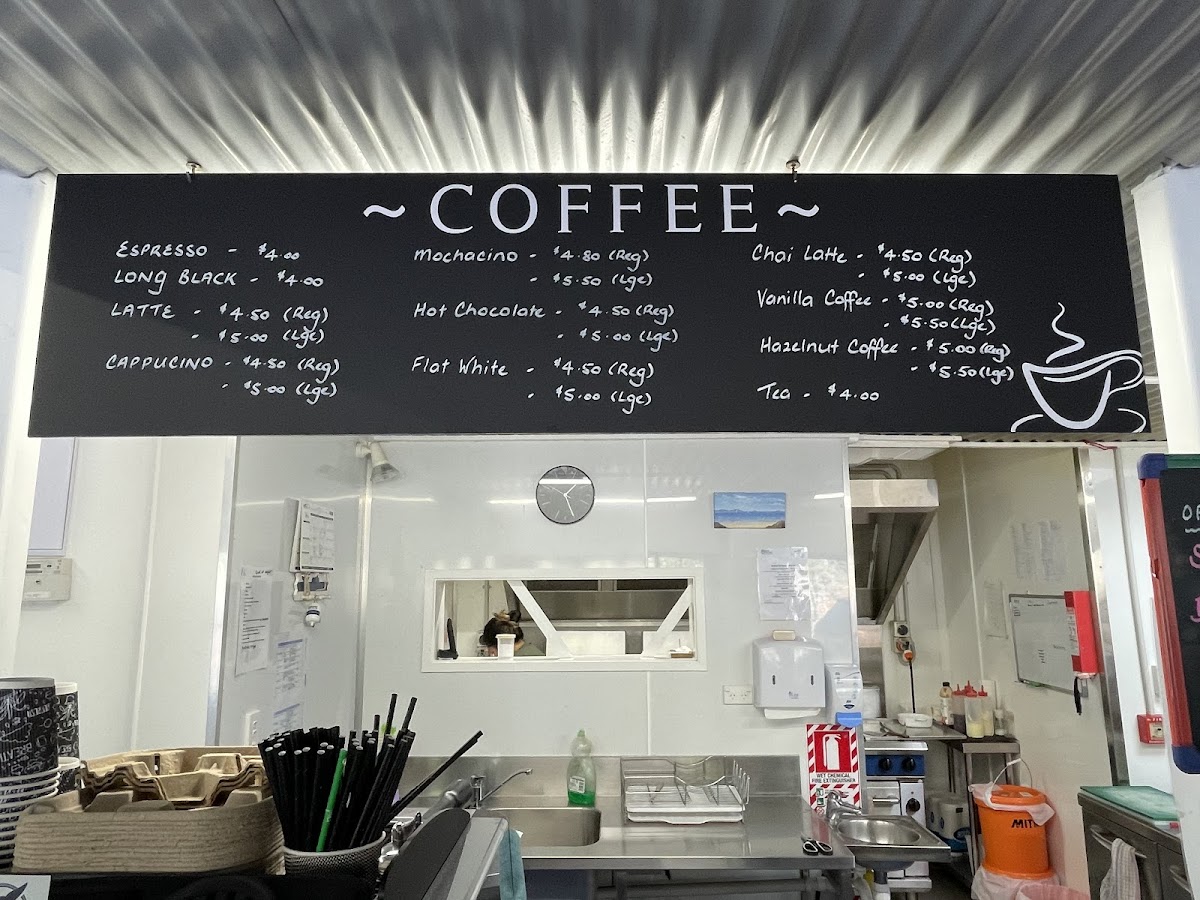 ~COFFEE~
ESPRESSO - $4.00
LONG BLACK - $4.00
LATTE - $4.50 (Reg)
- $5.00 (Lge)
CAPPUCINO - $4.50 (Reg)
- $5.00 (Lge)
Mochacino - $4.80 (Reg)
- $5.50 (Lge)
Hot Chocolate - $4.50 (Reg)
- $5.00 (Lge)
Flat White - $4.50 (Reg)
- $5.00 (Lge)
Chai Latte - $4.50 (Reg)
- $5.00 (Lge)
Vanilla Coffee - $5.00 (Reg)
- $5.50 (Lge)
Hazelnut Coffee - $5.00 (Reg)
- $5.50 (Lge)
Tea - $4.00
WET CHEMICAL
FIRE EXTINGUISHER